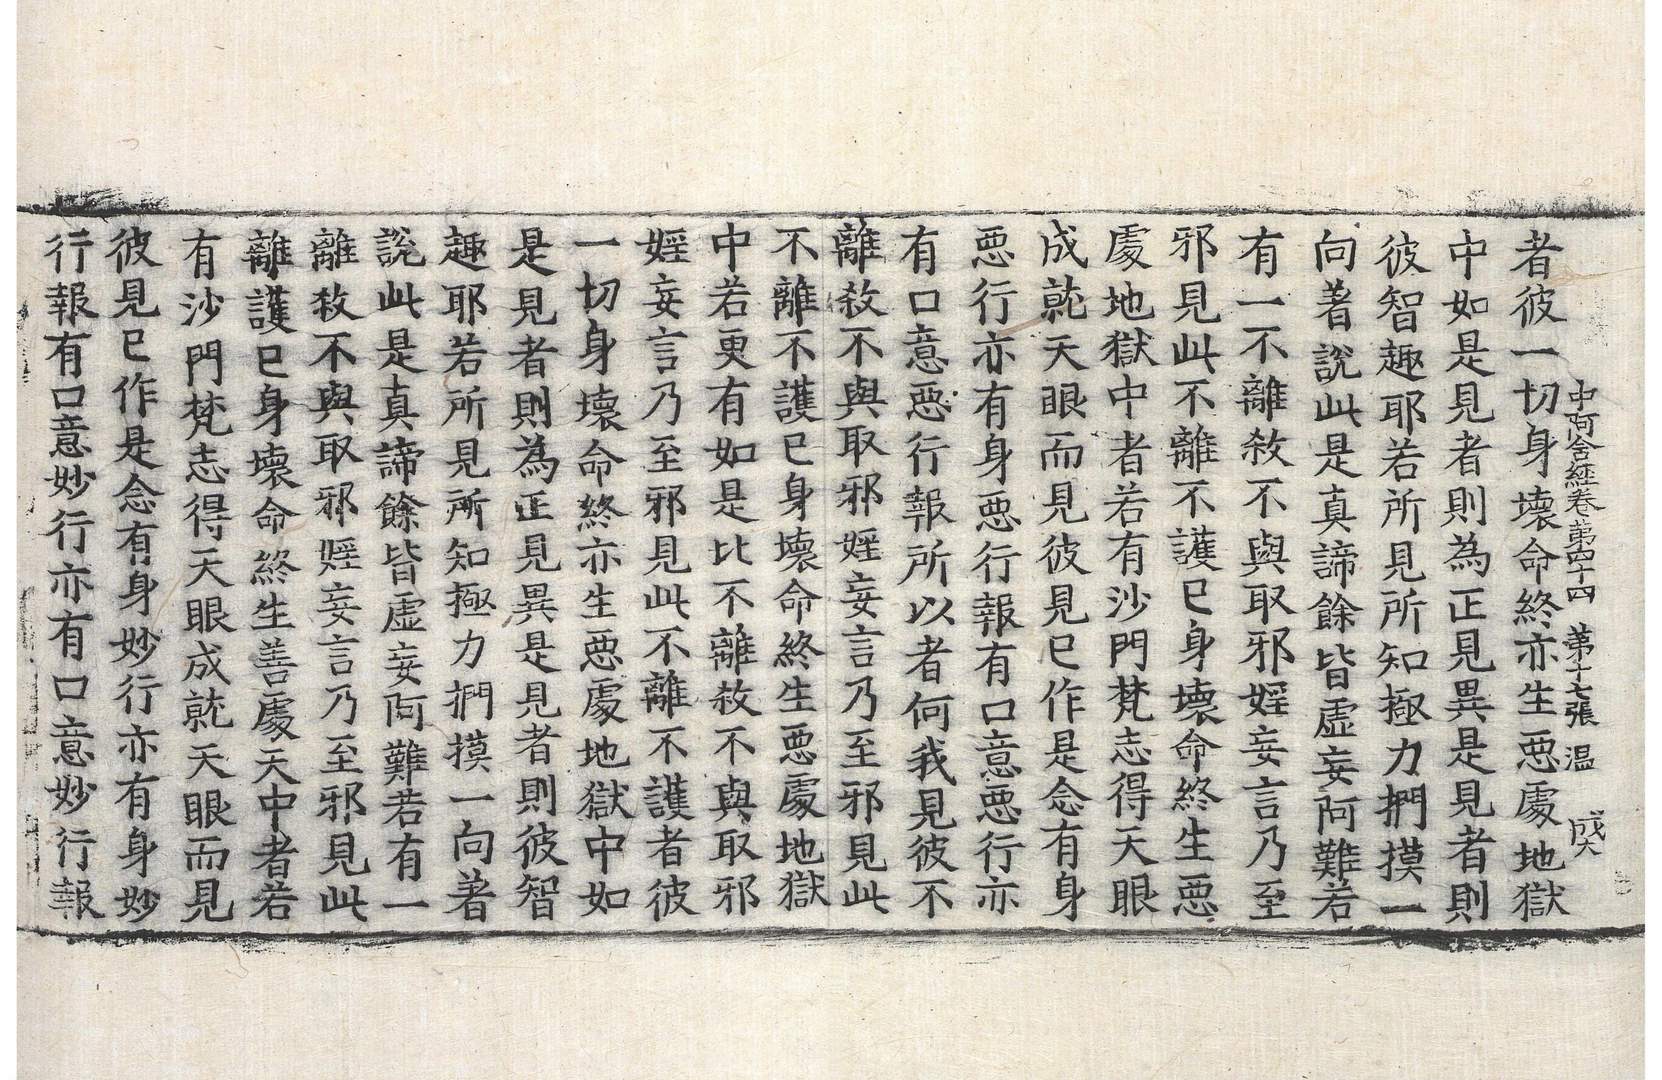 中阿含經卷第四十四　第十七張　溫　成大
者彼一切身壞命終亦生惡處地獄
中如是見者則為正見異是見者則
彼智趣耶若所見所知極力捫摸一
向著說此是真諦餘皆虛妄阿難若
有一不離殺不與取邪婬妄言乃至
邪見此不離不護已身壞命終生惡
處地獄中者若有沙門梵志得天眼
成就天眼而見彼見已作是念有身
惡行亦有身惡行報有口意惡行亦
有口意惡行報所以者何我見彼不
離殺不與取邪婬妄言乃至邪見此
不離不護已身壞命終生惡處地獄
中若更有如是比不離殺不與取邪
婬妄言乃至邪見此不離不護者彼
一切身壞命終亦生惡處地獄中如
是見者則為正見異是見者則彼智
趣耶若所見所知極力捫摸一向著
說此是真諦餘皆虛妄阿難若有一
離殺不與取邪婬妄言乃至邪見此
離護已身壞命終生善處天中者若
有沙門梵志得天眼成就天眼而見
彼見已作是念有身妙行亦有身妙
行報有口意妙行亦有口意妙行報